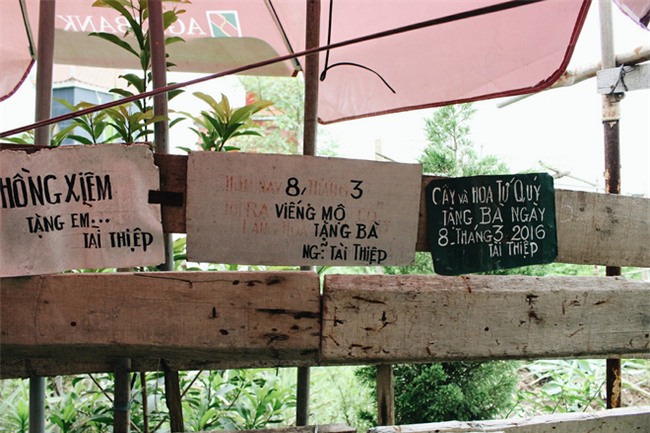 AGRIBANK
HỒNG XIÊM
TẶNG EM...
TÀI THIỆP
HÔM NAY 8, THÁNG 3
RA VIẾNG MỘ
TẶNG BÀ
NG: TÀI THIỆP
CÂY VÀ HOA TỨ QUÝ
TẶNG BÀ NGÀY
8. THANG 3 2016
TÀI THIỆP